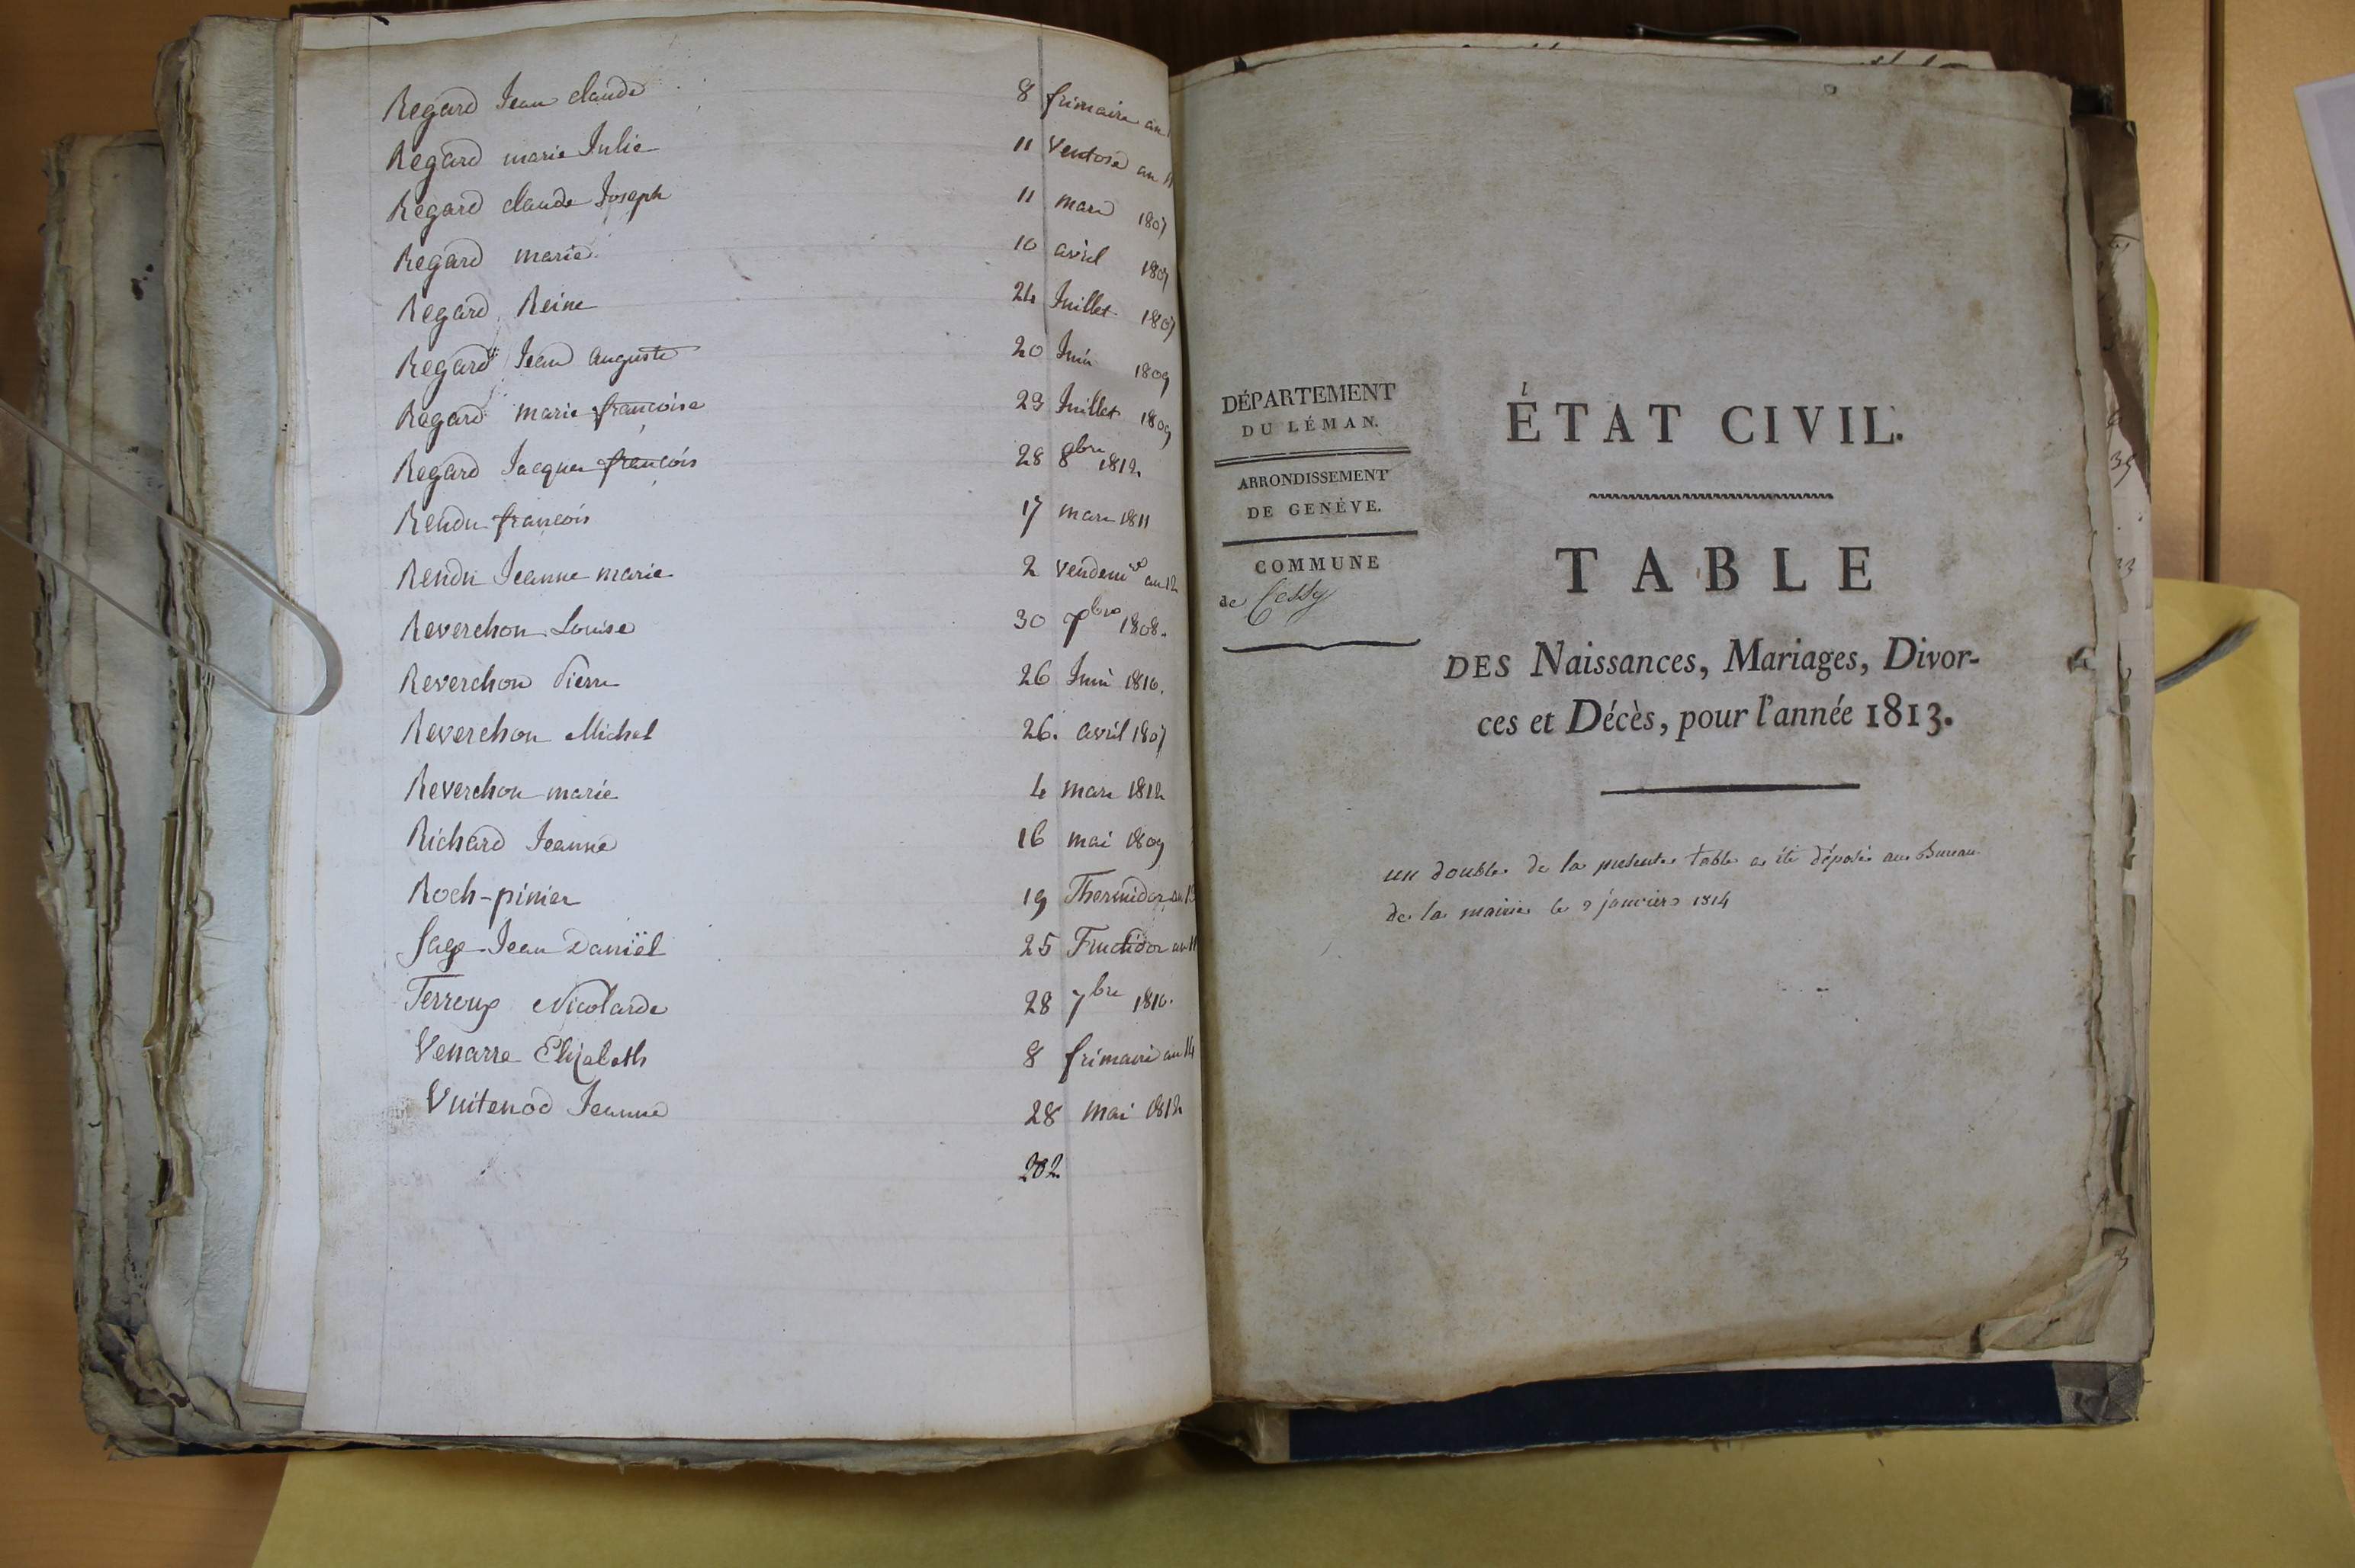 Regard Jean claude 8 frimaire an
Regard marie Julie 11 Ventose an 11
Regard claude Joseph 11 mars 1807
Regard marie 10 avril 1807
Regard Reine 24 Juillet 1807
Regard Jean auguste 20 Juin 1809
Regard marie françoise 29 Juillet 1809
Regard Jacques françois 28 8bre 1812
Rendu françois 17 mars 1811
Rendu Jeanne marie 2 vendemre an 12
Reverchon Louise 30 7bre 1808.
Reverchon Pierre 26 Juin 1810.
Reverchon Michel 26. avril 1807
Reverchon marie 4 mars 1812
Richard Jeanne 16 mai 1809
Roch-pinier 19 Thermidor an 13
Sage Jean Daniël 25 Fructidor an 11
Terroux Nicolarde 28 7bre 1810.
Venarre Elizabeth 8 frimaire an 14
Vuitenod Jeanne 28 mai 1812
202.
DÉPARTEMENT
DU LÉMAN.
ARRONDISSEMENT
DE GENÈVE.
COMMUNE
de Cessy
ÉTAT CIVIL.
TABLE
DES Naissances, Mariages, Divor-
ces et Décès, pour l'année 1813.
un double de la presente table a été déposé au Bureau
de la mairie le janvier 1814